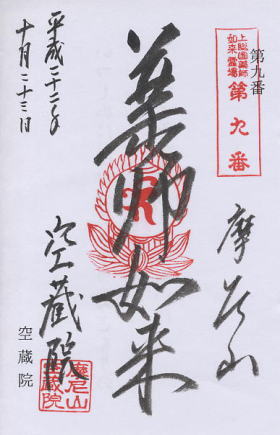 第九番
上総国薬師
如来霊場
第九番
摩尼山
薬師如来
空蔵院
空蔵院
摩尼山
空蔵院
平成二十二年
十月二十三日